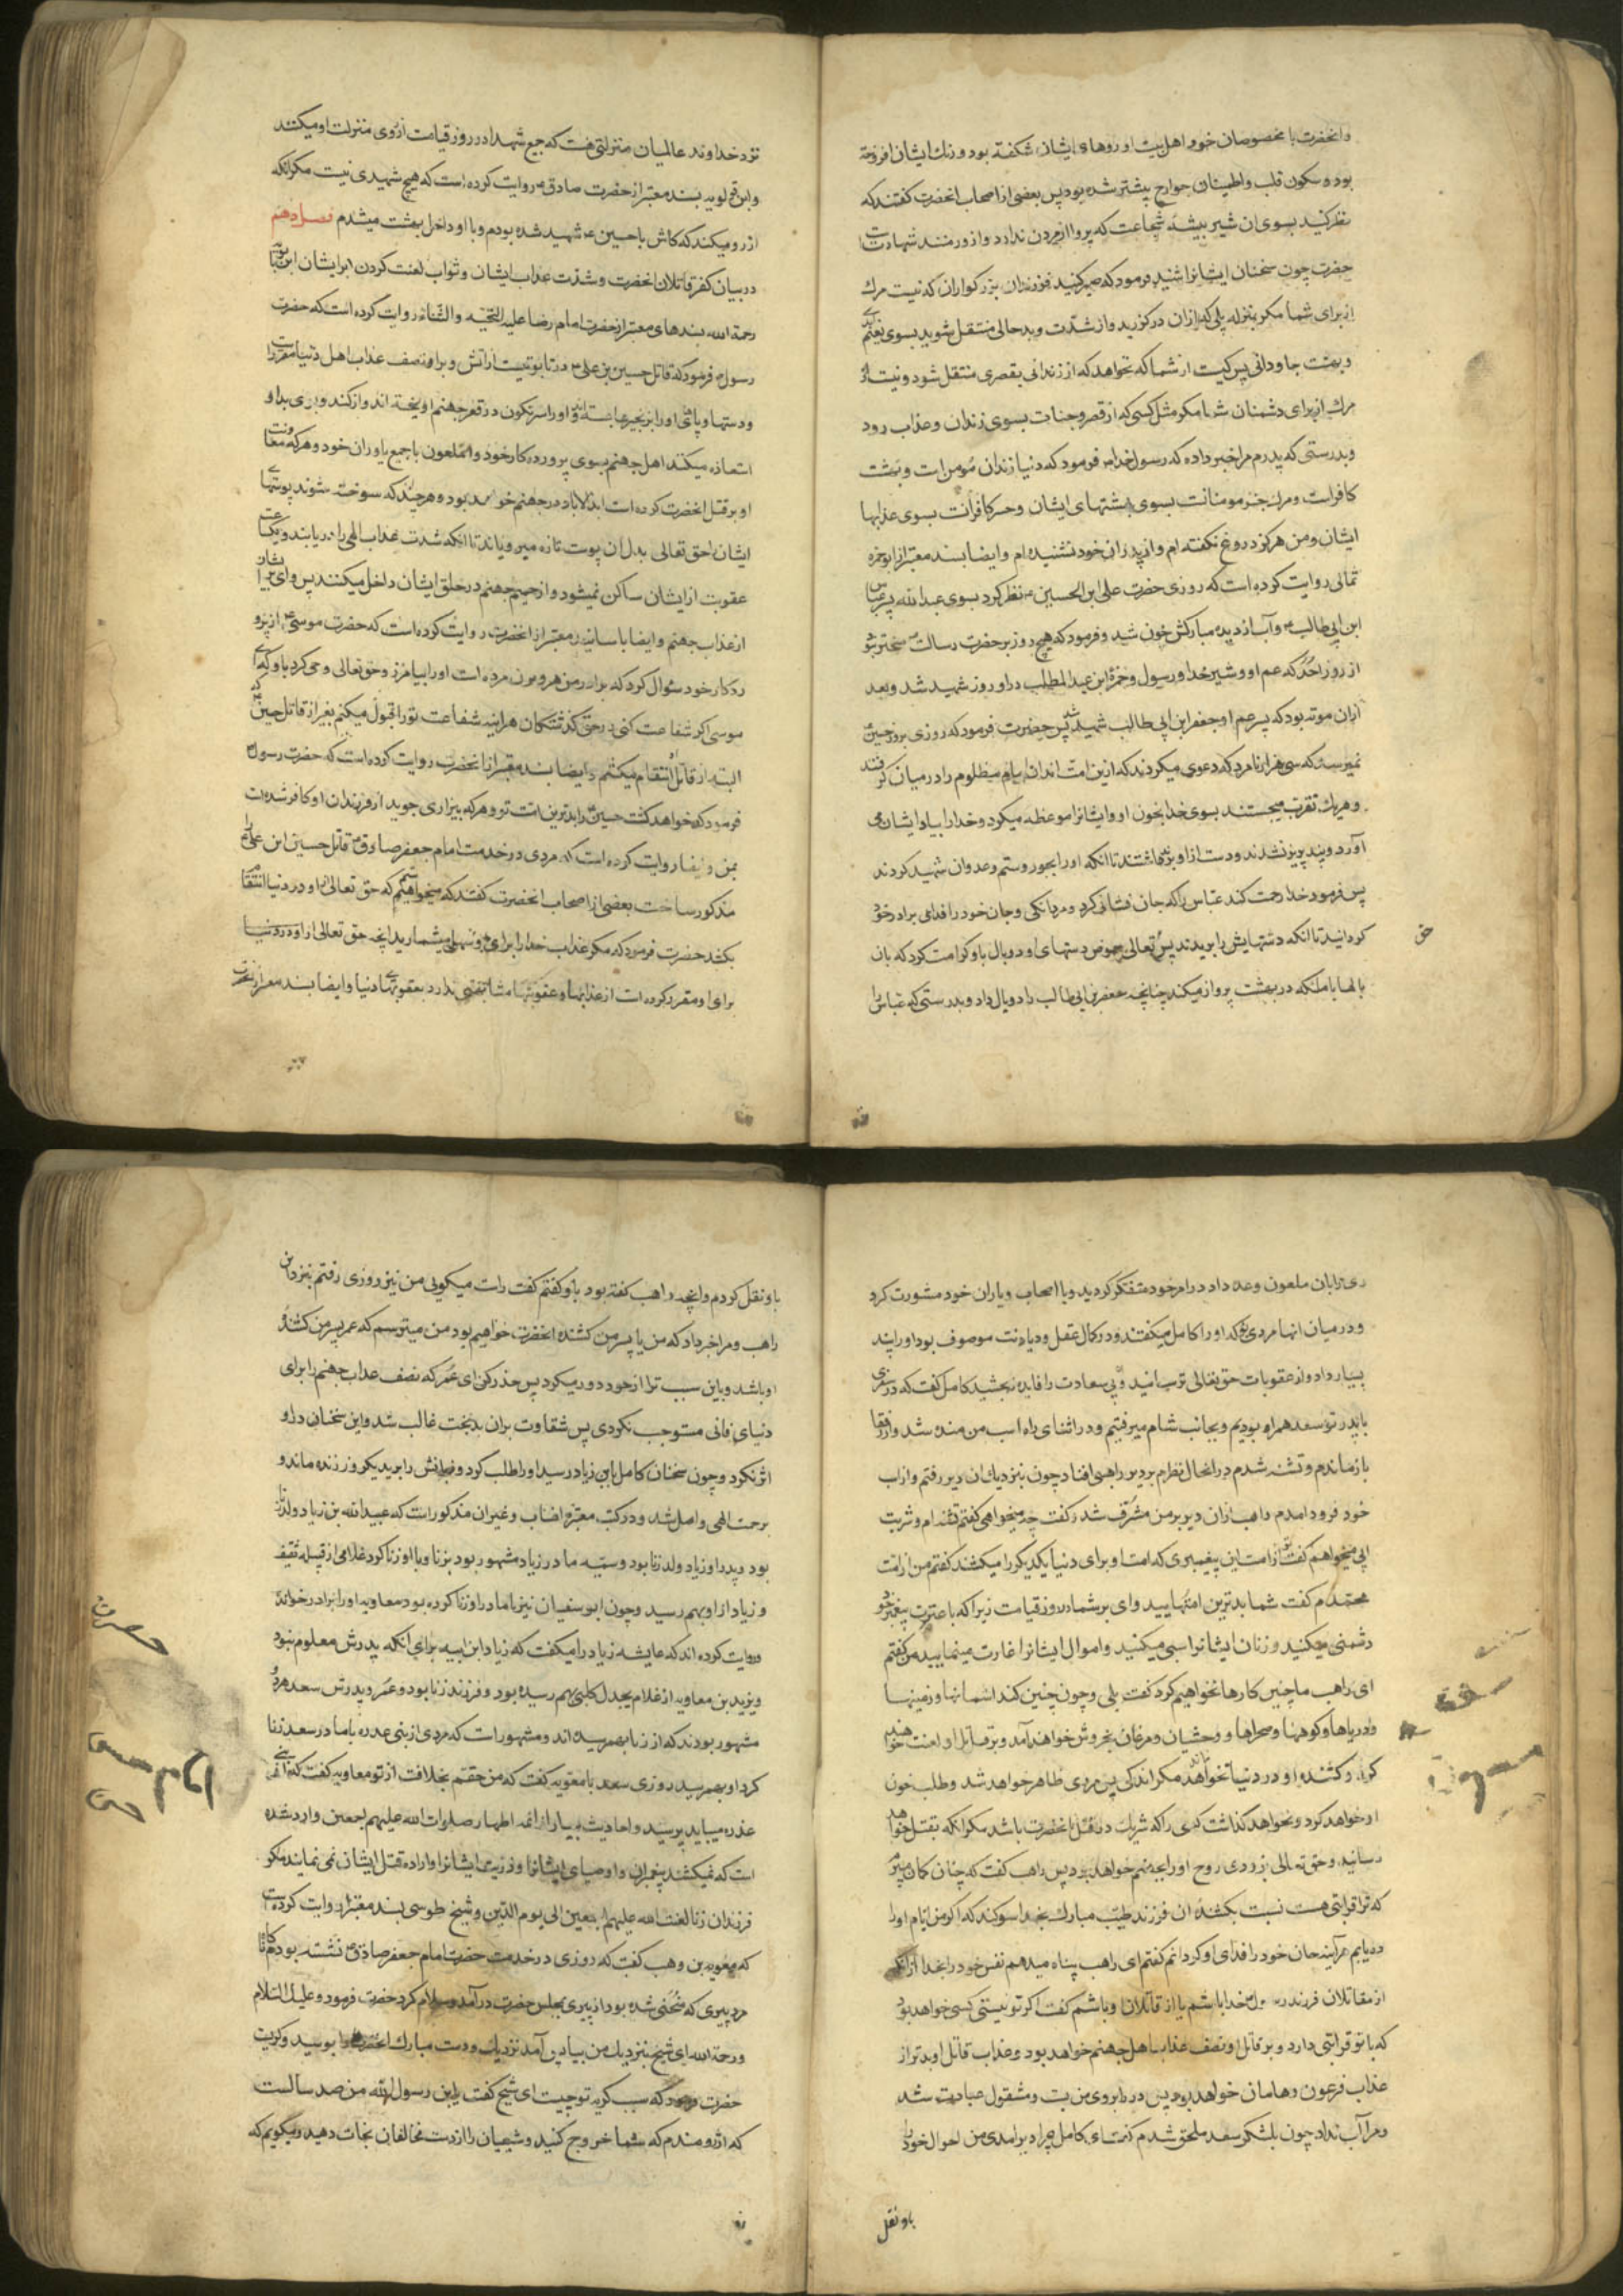 وانحضرت با مخصوصان خود و اهل بیت او روهای ایشان شکفته بود و رنك ایشان افروخته
بود و سکون قلب و اطمینان جوارح بیشتر شده بود پس بعضی از اصحاب انحضرت کفتند که
نظر کنید بسوی ان شیر بیشه شجاعت که پروا از مردن ندارد و ارزومند شهادت است
حضرت چون سخنان ایشانرا شنید فرمود که صبر کنید فرزندان بزرکواران که نیست مرك
از برای شما مکر بمنزله پلی که از ان درکذرید و از شدّت و بدحالی منتقل شوید بسوی نعیم
و بهشت جاودانی پس کیست از شما که نخواهد که از زندانی بقصری منتقل شود و نیست
مرك از برای دشمنان شما مکر مثل کسی که از قصر و جنات بسوی زندان و عذاب رود
و بدرستی که پدرم مرا خبر داده که رسول خدا فرمود که دنیا زندان مؤمن است و بهشت
کافراست و مرك جسر مومنانست بسوی بهشتهای ایشان و جسر کافرانست بسوی عذابها
ایشان و من هرکز دروغ نکفته ام و از پدران خود نشنیده ام و ایضا بسند معتبر از ابو حمزه
ثمالی روایت کرده است که روزی حضرت علی ابن الحسین نظر کرد بسوی عبدالله پسر عباس
ابن ابی طالب و آب از دیده مبارکش خون شد و فرمود که هیچ روز بر حضرت رسالت سختر نبود
از روز احُد که عم او و شیر خدا و رسول حمزة ابن عبدالمطلب در او روز شهید شد و بعد
ازان موته بود که پسر عم او جعفر ابن ابی طالب شهید شد پس حضرت فرمود که روزی بروز حسین
نمیرسد که سی هزار نامرد که دعوی میکردند که ازین امت اند ان امام مظلوم را در میان کرفتند
و هر یك تقرب میجستند بسوی خدا بخون او و ایشانرا موعظه میکرد و خدا را بیاد ایشان می
آورد و پند پزیر نشدند و دست از او برنداشتند تا انکه او را بجور و ستم و عدوان شهید کردند
پس فرمود خدا رحمت کند عباس را که جان فشانی کرد و مردانکی و جان خود را فدای برادر خود
کردانید تا انکه دستهایش را بریدند پس تعالی بعوض دستهای او دو بال باو کرامت کرد که بان
حق
بالها با ملئکه در بهشت پرواز میکند چنانچه جعفر بن ابی طالب را دو بال داد و بدرستی که عباس را
نزد خداوند عالمیان منزلتی هست که جمیع شهدا در روز قیامت ارزوی منزلت او میکنند
و ابن قولویه بسند معتبر از حضرت صادق روایت کرده است که هیچ شهیدی نیست مکر انکه
ارزو میکند که کاش با حسین شهید شده بودم و با او داخل بهشت میشدم فصل دهم
در بیان کفر قاتلان انحضرت و شدّت عذاب ایشان و ثواب لعنت کردن بر ایشان ابن بابویه
رحمة الله بسندهای معتبر از حضرت امام رضا علیه التحیّه والثناء روایت کرده است که حضرت
رسول فرمود که قاتل حسین بن علی در تابوتیست از آتش و بر او نصف عذاب اهل دنیا مقرر است
و دستها و پای او را بزنجیرها بسته اند و او را سرنکون در قعر جهنم اویخته اند و از کند و بوی بد او
استعاذه میکنند اهل جهنم بسوی پرورده کار خود و ان ملعون با جمیع یاوران خود و هر که معاونت
او بر قتل انحضرت کرده است ابد لاباد در جهنم خواهد بود و هر چند که سوخته شوند پوستهای
ایشان حق تعالی بدل ان پوست تازه میرویاند تا انکه شدت عذاب الهی را دریابند و یکساعت
عقوبت از ایشان ساکن نمیشود و از حمیم جهنم در حلق ایشان داخل میکنند پس وای بر ایشان
از عذاب جهنم و ایضا باسانید معتبر از انحضرت روایت کرده است که حضرت موسی از پرو
ردکار خود سئوال کرد که برادر من هرون مرده است او را بیامرز و حق تعالی وحی کرد باو که ای
موسی اکر شفاعت کنی در حق کذشتکان هراینه شفاعت تو را قبول میکنم بغیر از قاتل حسین که
البته از قاتل او انتقام میکشم و ایضا بسند معتبر از انحضرت روایت کرده است که حضرت رسول
فرمود که خواهد کشت حسین را بدترین امت تو و هر که بیزاری جوید از فرزندان او کافر شده است
بمن و ایضا روایت کرده است که مردی در خدمت امام جعفر صادق قاتل حسین ابن علی را
مذکور ساخت بعضی از اصحاب انحضرت کفتند که میخواهیم که حق تعالی از او در دنیا انتقام
بکشد حضرت فرمود که مکر عذاب خدا را برای او سهل میشمارید انچه حق تعالی از او در دنیا
برای او مقرر کرده است از عذابها و عقوبتها مشابهتی ندارد بعقوبتهای دنیا و ایضا بسند معتبر از انحضرت
ری بابان ملعون وعده داد در امر خود متفکر کردید و با اصحاب و یاران خود مشورت کرد
و در میان انها مردی بود که او را کامل میکفتند و در کمال عقل و دیانت موصوف بود او را پند
بسیار داد و از عقوبات حق تعالی ترسانید و ان بی سعادت را فایده نبخشید کامل کفت که در سفری
با پدر تو سعد همراه بودیم و بجانب شام میرفتیم و در اثنای راه اسب من مانده شد و از رفقا
بازماندم و تشنه شدم در انحال نظرم بر دیر راهبی افتاد چون بنزدیك ان دیر رفتم و از اسب
خود فرود امدم راهب ازان دیر بر من مشرف شد و کفت چه میخواهی کفتم تشنه ام و شربت
ابی میخواهم کفت تو از امت این پیغمبری که امت او برای دنیا یکدیکر را میکشند کفتم من از امت
محمّدم کفت شما بدترین امتهایید وای بر شما در روز قیامت زیرا که با عترت پیغمبر خود
دشمنی میکنید و زنان ایشانرا سبی میکنید و اموال ایشانرا غارت مینمایید من کفتم
ای راهب ما چنین کارها نخواهیم کرد کفت بلی و چون چنین کنند اسمانها و زمینها
و دریاها و کوهها و صحراها و وحشیان و مرغان بخروش خواهند آمد و بر قاتل او لعنت خواهند
کرد و کشنده او در دنیا نخواهد ماند مکر اندکی پس مردی ظاهر خواهد شد و طلب خون
او خواهد کرد و نخواهد کذاشت کسی را که شریك در قتل انحضرت باشد مکر انکه بقتل خواهد
رسانید و حق تعالی بزودی روح او را بجهنم خواهد برد پس راهب کفت که چنان کمان میبرم
که ترا قرابتی هست نسبت بکشنده ان فرزند طیّب مبارك بخدا سوکند که اکر من ایّام او را
دریابم هرآینه جان خود را فدای او کردانم کفتم ای راهب پناه میدهم نفس خود را بخدا از انکه
از مقاتلان فرزند رسول خدا باشم یا از قاتلان او باشم کفت اکر تو نیستی کسی خواهد بود
که با تو قرابتی دارد و بر قاتل او نصف عذاب اهل جهنم خواهد بود و عذاب قاتل او بدتر از
عذاب فرعون و هامان خواهد بود پس در را بروی من بست و مشغول عبادت شد
و مرا آب نداد چون بلشکر سعد ملحق شدم کفت ای کامل چرا دیر امدی من احوال خود را
باو نقل
باو نقل کردم و انچه راهب کفته بود باو کفتم کفت راست میکویی من نیز روزی رفتم بنزد این
راهب و مرا خبر داد که من یا پسر من کشنده انحضرت خواهیم بود من میترسم که عمر پسر من کشنده
او باشد و باین سبب ترا از خود دور میکرد پس حذر کن ای عُمر که نصف عذاب جهنم را برای
دنیای فانی مستوجب نکردی پس شقاوت بران بدبخت غالب شد و این سخنان در او
اثر نکرد و چون سخنان کامل بابن زیاد رسید او را طلب کرد و زبانش را برید یکروز زنده ماند و
برحمت الهی واصل شد و در کتب معتبره انساب و غیر ان مذکور است که عبیدالله بن زیاد ولد زنا
بود و پدر او زیاد ولد زنا بود و سمیّه مادر زیاد مشهور بود بزنا و با او زنا کرد غلامی از قبیله ثقیف
و زیاد از او بهم رسید و چون ابو سفیان نیز با مادر او زنا کرده بود معاویه او را برادر خواند
و روایت کرده اند که عایشه زیاد را میکفت که زیاد ابن ابیه برای انکه پدرش معلوم نبود
و یزید بن معاویه از غلام بجدل کلبی بهم رسیده بود و فرزند زنا بود و عُمر و پدرش سعد هردو
مشهور بودند که از زنا بهمرسیده اند و مشهور است که مردی از بنی عذره با مادر سعد زنا
کرد او بهمرسید روزی سعد با معویه کفت که من حقّم بخلافت از تو معاویه کفت که بنی
عذره میباید پرسید و احادیث بسیار از ائمه اطهار صلوات الله علیهم اجمعین وارد شده
است که نمیکشند پیغمبران و اوصیای ایشانرا و ذریت ایشانرا و اراده قتل ایشان نمی نماید مکر
فرزندان زنا لعنت الله علیهم اجمعین الی یوم الدّین و شیخ طوسی بسند معتبر روایت کرده است
که معویه بن وهب کفت که روزی در خدمت حضرت امام جعفر صادق نشسته بودم ناکاه
مرد پیری که منحنی شده بود از پیری بمجلس حضرت درآمد و سلام کرد حضرت فرمود و علیك السّلام
و رحمة الله ای شیخ بنزدیك من بیا پس آمد نزدیك و دست مبارك انحضرت را بوسید و کریست
حضرت فرمود که سبب کریه تو چیست ای شیخ کفت یابن رسول الله من صد سالست
که ارزومندم که شما خروج کنید و شیعیان را از دست مخالفان نجات دهید و میکویم که